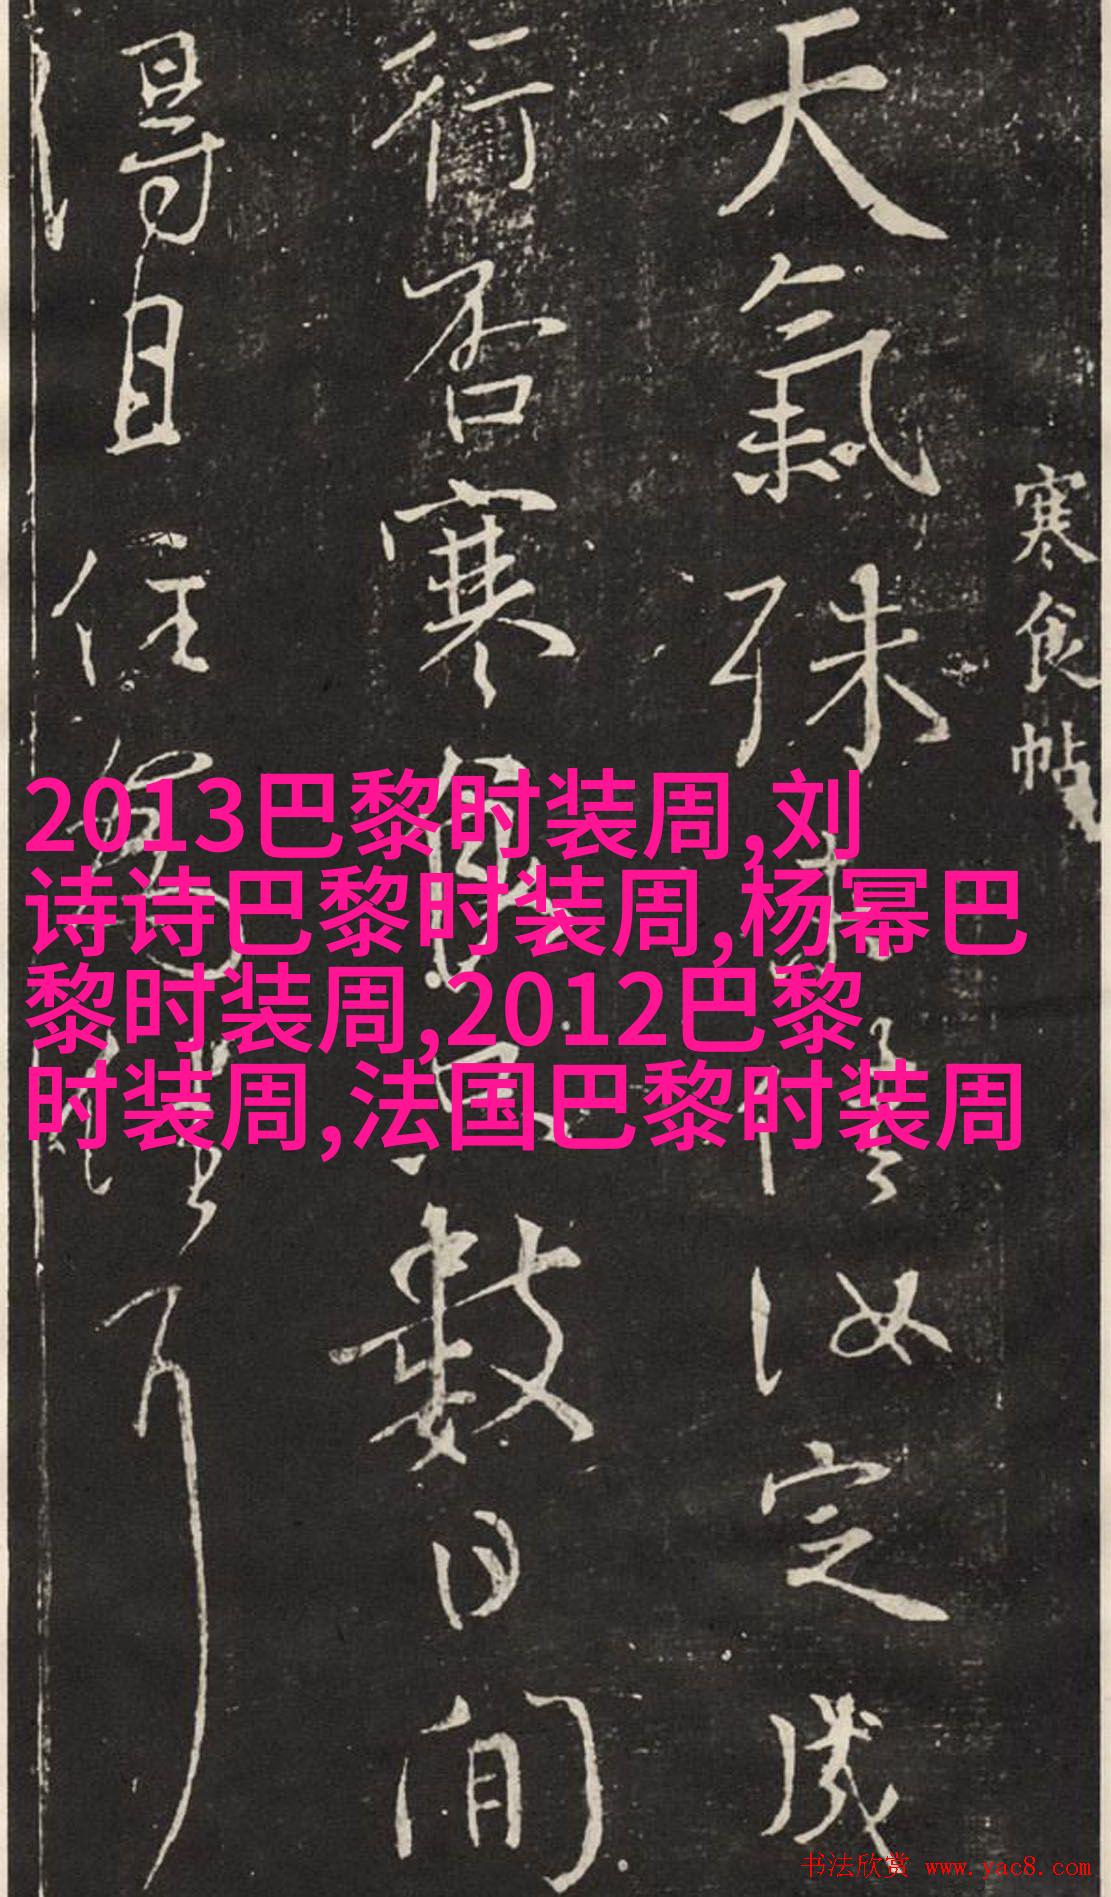 寒食帖
天氣殊未佳汝定成
行否寒食只數日間
得且住為佳耳
2013巴黎时装周,刘
诗诗巴黎时装周,杨幂巴
黎时装周,2012巴黎
时装周,法国巴黎时装周
书法欣赏 www.yac8.com